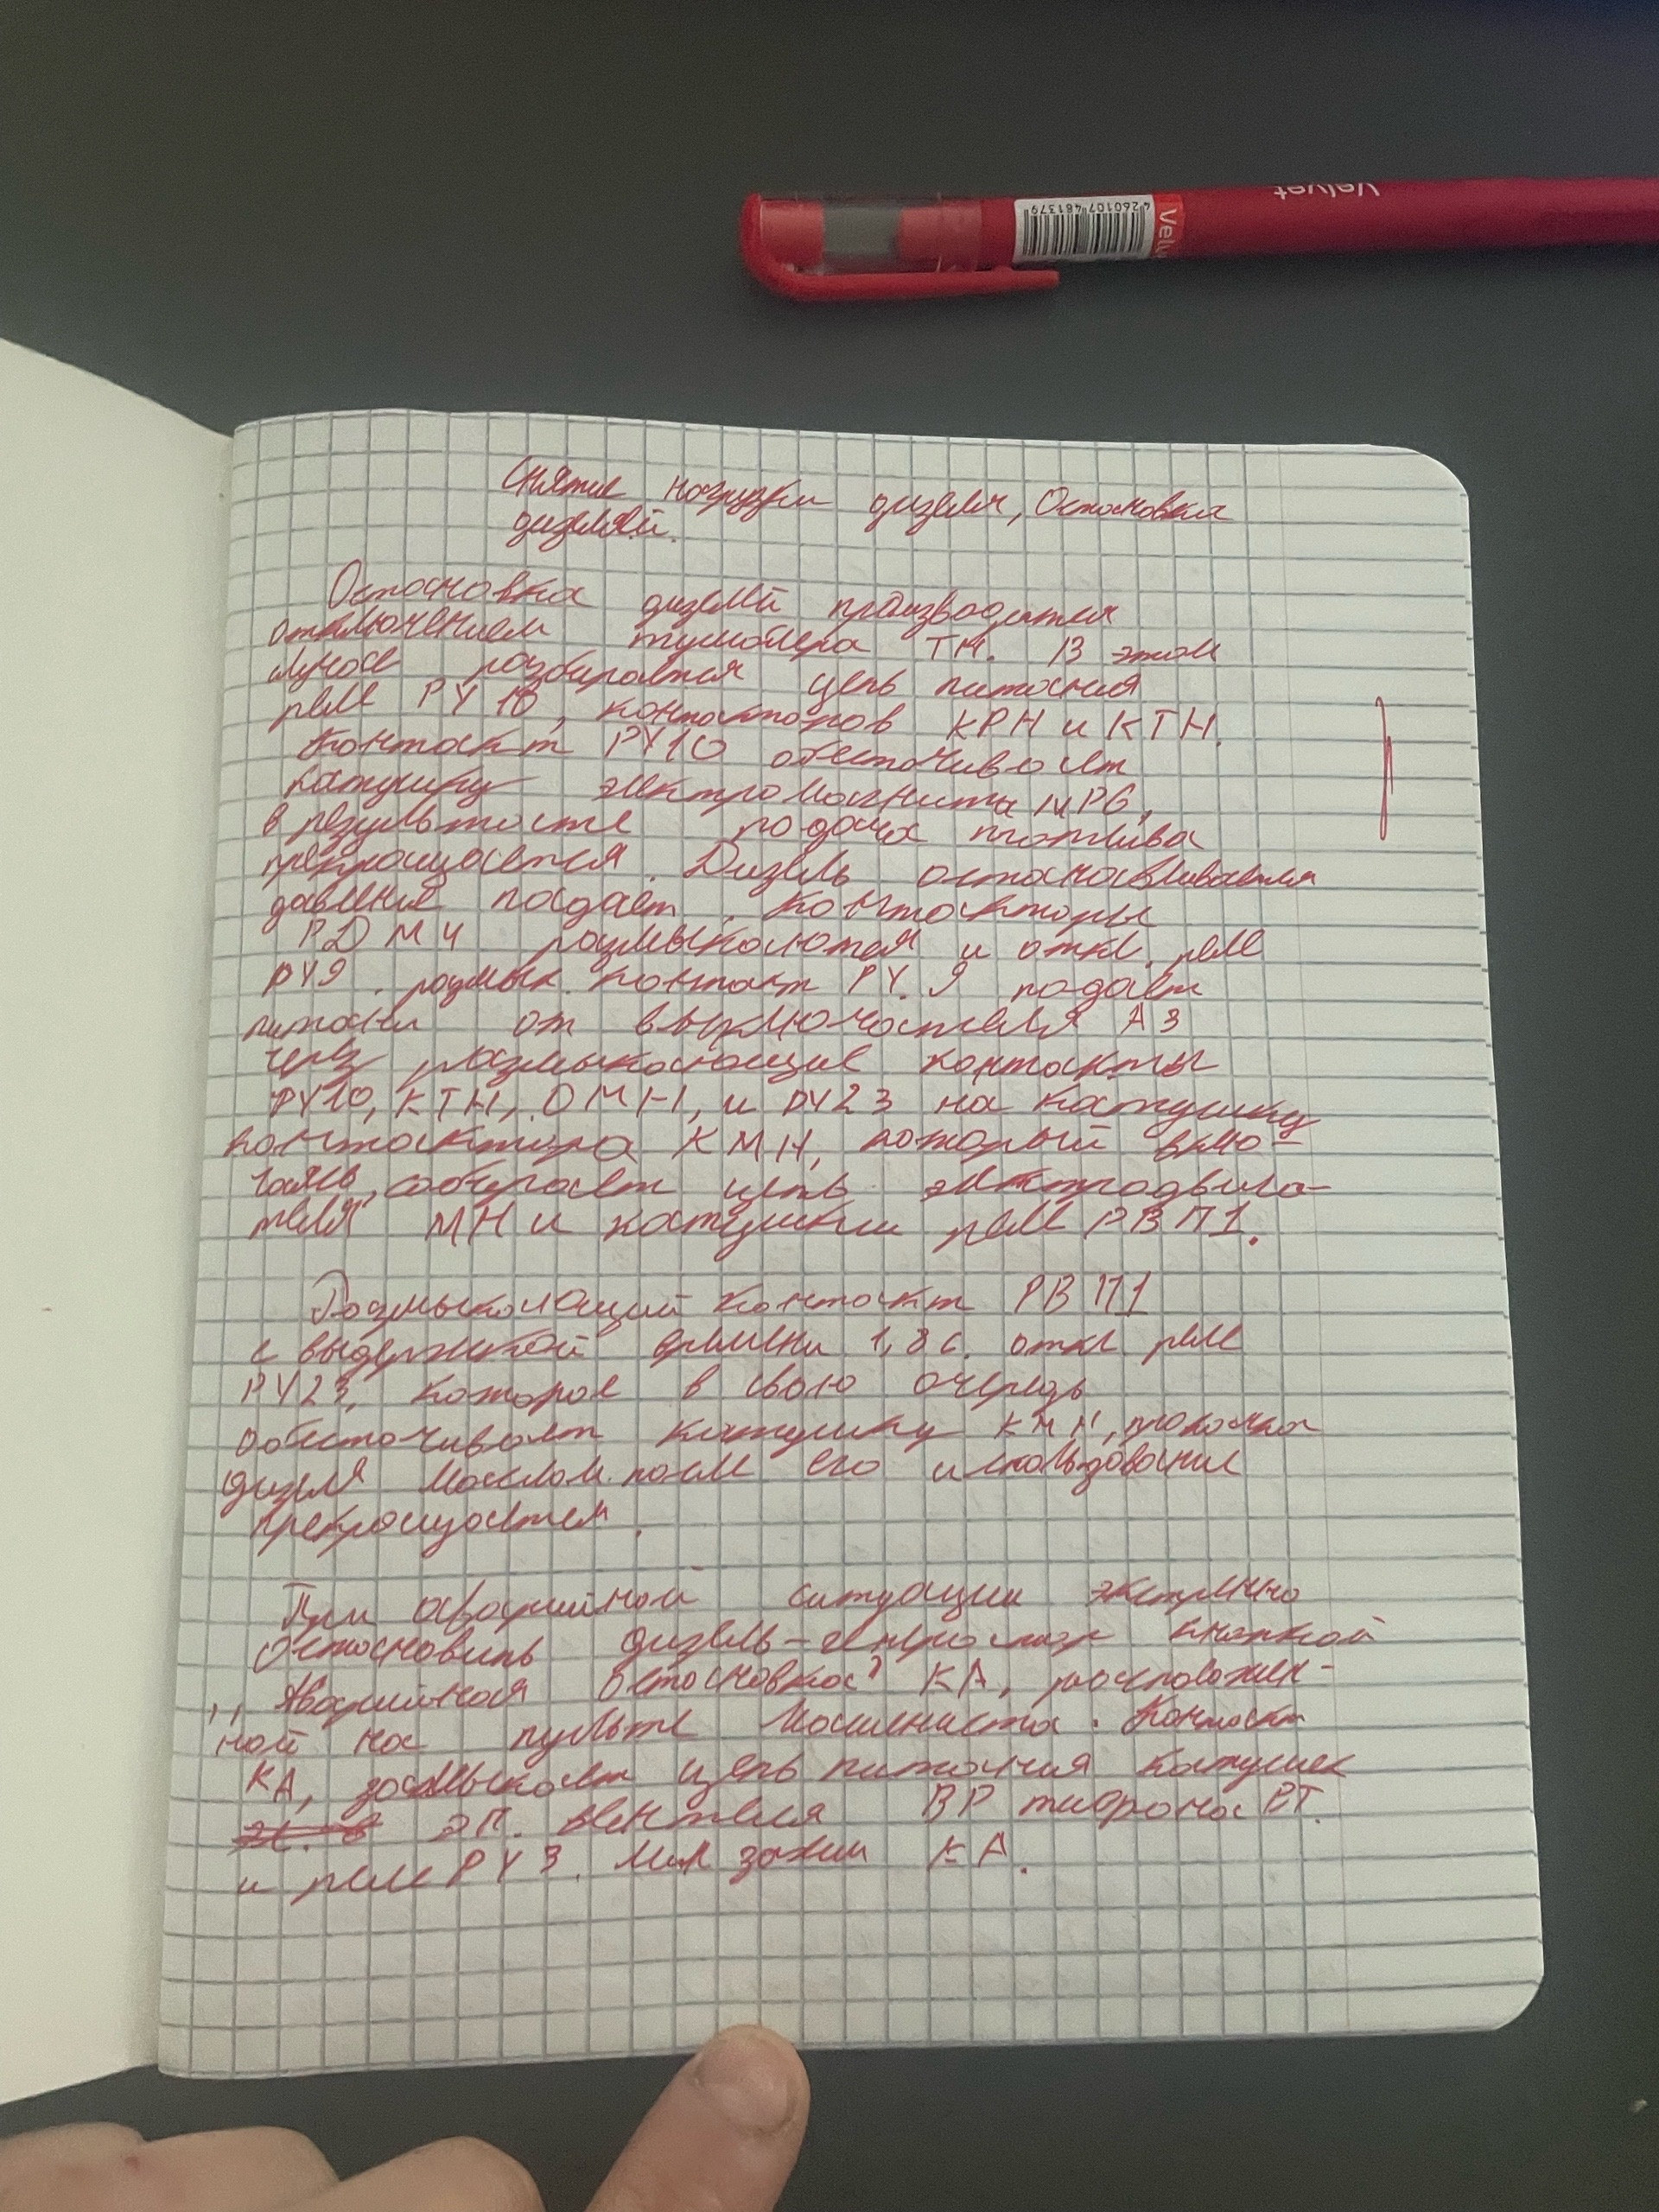 Velvet
Velv
4260107481379
Снятие нагрузки дизеля, Остановка
дизелей.
Остановка дизелей производится
отключением тумблера ТН. В этом
случае разбирается цепь питания
реле РУ10, контакторов КРН и КТН.
Контакт РУ10 обесточивает
катушку электромагнита МР6,
в результате подача топлива
прекращается. Дизель останавливается
давление падает. Контакторы
РДМ4 размыкаются и откл. реле
РУ9. размык. контакт РУ.9 подает
питани от выключателя А3
через размыкающие контакты
РУ10, КТН, ОМН, и РУ23 на катушку
контактора КМН, который вклю-
чаясь, собирает цепь электродвига-
теля МН и катушки реле РВП1.
Размыкающий контакт РВП1
с выдержкой времени 1,8 с. откл реле
РУ23, которое в свою очередь
обесточивает катушку КМН, прокачка
дизеля маслом после его использования
прекращается.
При аварийной ситуации экстренно
Остановить дизель-генератор кнопкой
,, Аварийная остановка" КА, расположен-
ной на пульте Машиниста. Контакт
КА, замыкает цепь питания катушек
ЭП. вентеля ВР тифрона ВТ.
и реле РУ3. КА.